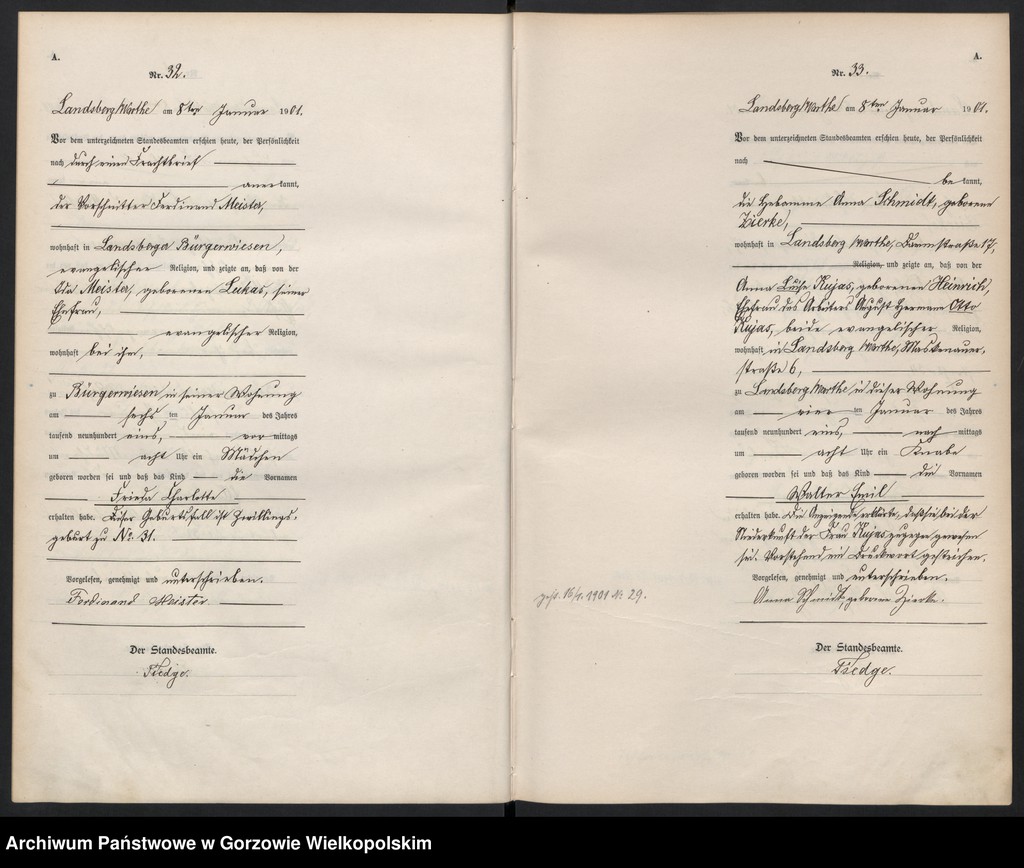 A.
Nr. 32.
Landsberg/Warthe am 8ten Januar 1901.
Vor dem unterzeichneten Standesbeamten erschien heute, der Persönlichkeit
nach durch einen Frachtbrief
anerkannt,
der Vorschnitter Ferdinand Meister,
wohnhaft in Landsberger Bürgerwiesen,
evangelischer Religion, und zeigte an, daß von der
Ida Meister, geborenen Lukas, seiner
Ehefrau,
evangelischer Religion,
wohnhaft bei ihm,
zu Bürgerwiesen in seiner Wohnung
am sechs ten Januar des Jahres
tausend neunhundert eins, vor mittags
um acht Uhr ein Mädchen
geboren worden sei und daß das Kind die Vornamen
Frieda Charlotte
erhalten habe. Dieser Geburtsfall ist Zwillings-
geburt zu No. 31.
Vorgelesen, genehmigt und unterschrieben.
Ferdinand Meister
Der Standesbeamte.
A.
Nr. 33.
Landsberg/Warthe am 8ten Januar 1901.
Vor dem unterzeichneten Standesbeamten erschien heute, der Persönlichkeit
nach
bekannt,
die Hebamme Anna Schmidt, geborene
Zierke,
wohnhaft in Landsberg/Warthe, Dammstraße 17,
Religion, und zeigte an, daß von der
Anna Luise Kujas, geborenen Heinrich,
Ehefrau des Arbeiters August Hermann Otto
Kujas, beide evangelischer Religion,
wohnhaft in Landsberg/Warthe,
straße 6,
zu Landsberg/Warthe in dieser Wohnung
am vier ten Januar des Jahres
tausend neunhundert eins, nach mittags
um acht Uhr ein Knabe
geboren worden sei und daß das Kind die Vornamen
Walter Emil
erhalten habe. Die Anzeigende erklärte, daß sie bei der
Niederkunft der Frau Kujas zugegen gewesen
sei. Vorstehend ein Druckwort gestrichen.
Vorgelesen, genehmigt und unterschrieben.
Anna Schmidt, geborene Zierke.
Der Standesbeamte.
1901 No 29.
Archiwum Państwowe w Gorzowie Wielkopolskim